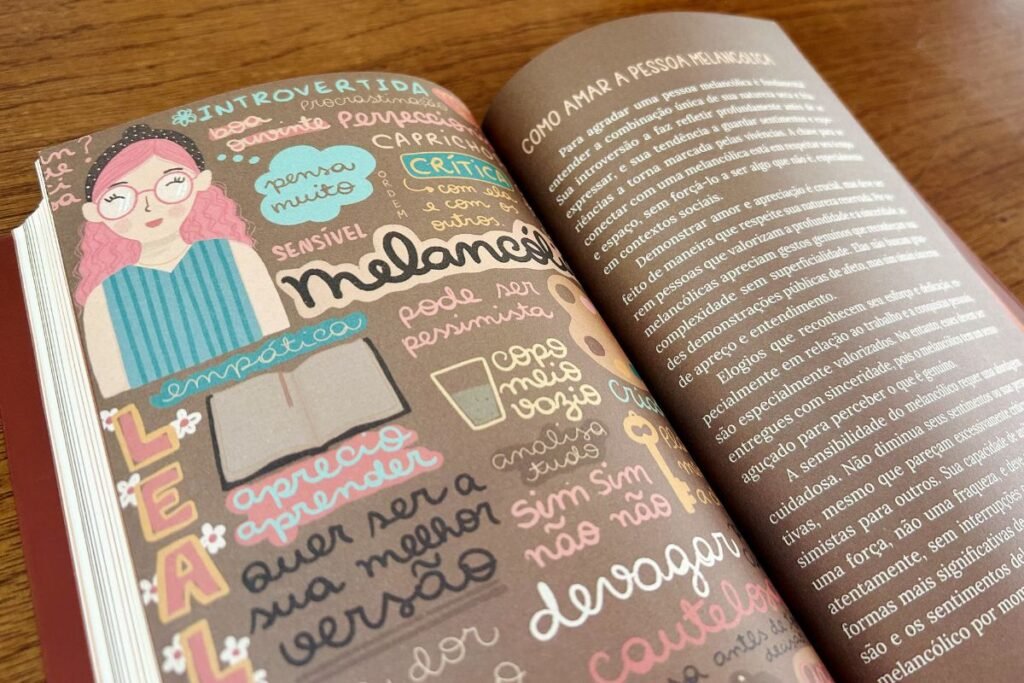 INTROVERTIDA
procrastinação
boa
ouvinte
Perfeccion
CAPRICHO
pensa
muito
CRÍTICA
com ela
e com os
outros
ORDEM
SENSÍVEL
melancóli
pode ser
pessimista
empática
copo
meio
vazio
cria
LEAL
aprecio
aprender
analisa
tudo
quer ser a
sua melhor
versão
sim sim
não não
devagar
cautelo
dor
antes de
COMO AMAR A PESSOA MELANCÓLICA
Para agradar uma pessoa melancólica é fundamental
entender a combinação única de sua natureza e
sua introversão a faz refletir profundamente antes de se
expressar, e sua tendência a guardar sentimentos e
riências a torna marcada pelas vivências. A chave para se
conectar com uma melancólica está em respeitar seu tempo e
espaço, sem forçá-lo a ser algo que não é, especialmente
em contextos sociais.
Demonstrar amor e apreciação é crucial, mas deve ser
feito de maneira que respeite sua natureza reservada.
rem pessoas que valorizam a profundidade e a sinceridade, as
melancólicas apreciam gestos genuínos que reconheçam sua
complexidade sem superficialidade. Elas não buscam gran-
des demonstrações públicas de afeto, mas sim sinais sinceros
de apreço e entendimento.
Elogios que reconhecem seu esforço e dedicação, es-
pecialmente em relação ao trabalho e a conquistas pessoais,
são especialmente valorizados. No entanto, esses devem ser
entregues com sinceridade, pois o melancólico tem um senso
aguçado para perceber o que é genuíno.
A sensibilidade do melancólico requer uma abordagem
cuidadosa. Não diminua seus sentimentos ou suas
tivas, mesmo que pareçam excessivamente
simistas para outros. Sua capacidade de
uma força, não uma fraqueza, e deve
atentamente, sem interrupções
formas mais significativas de
são e os sentimentos del
melancólico por mom